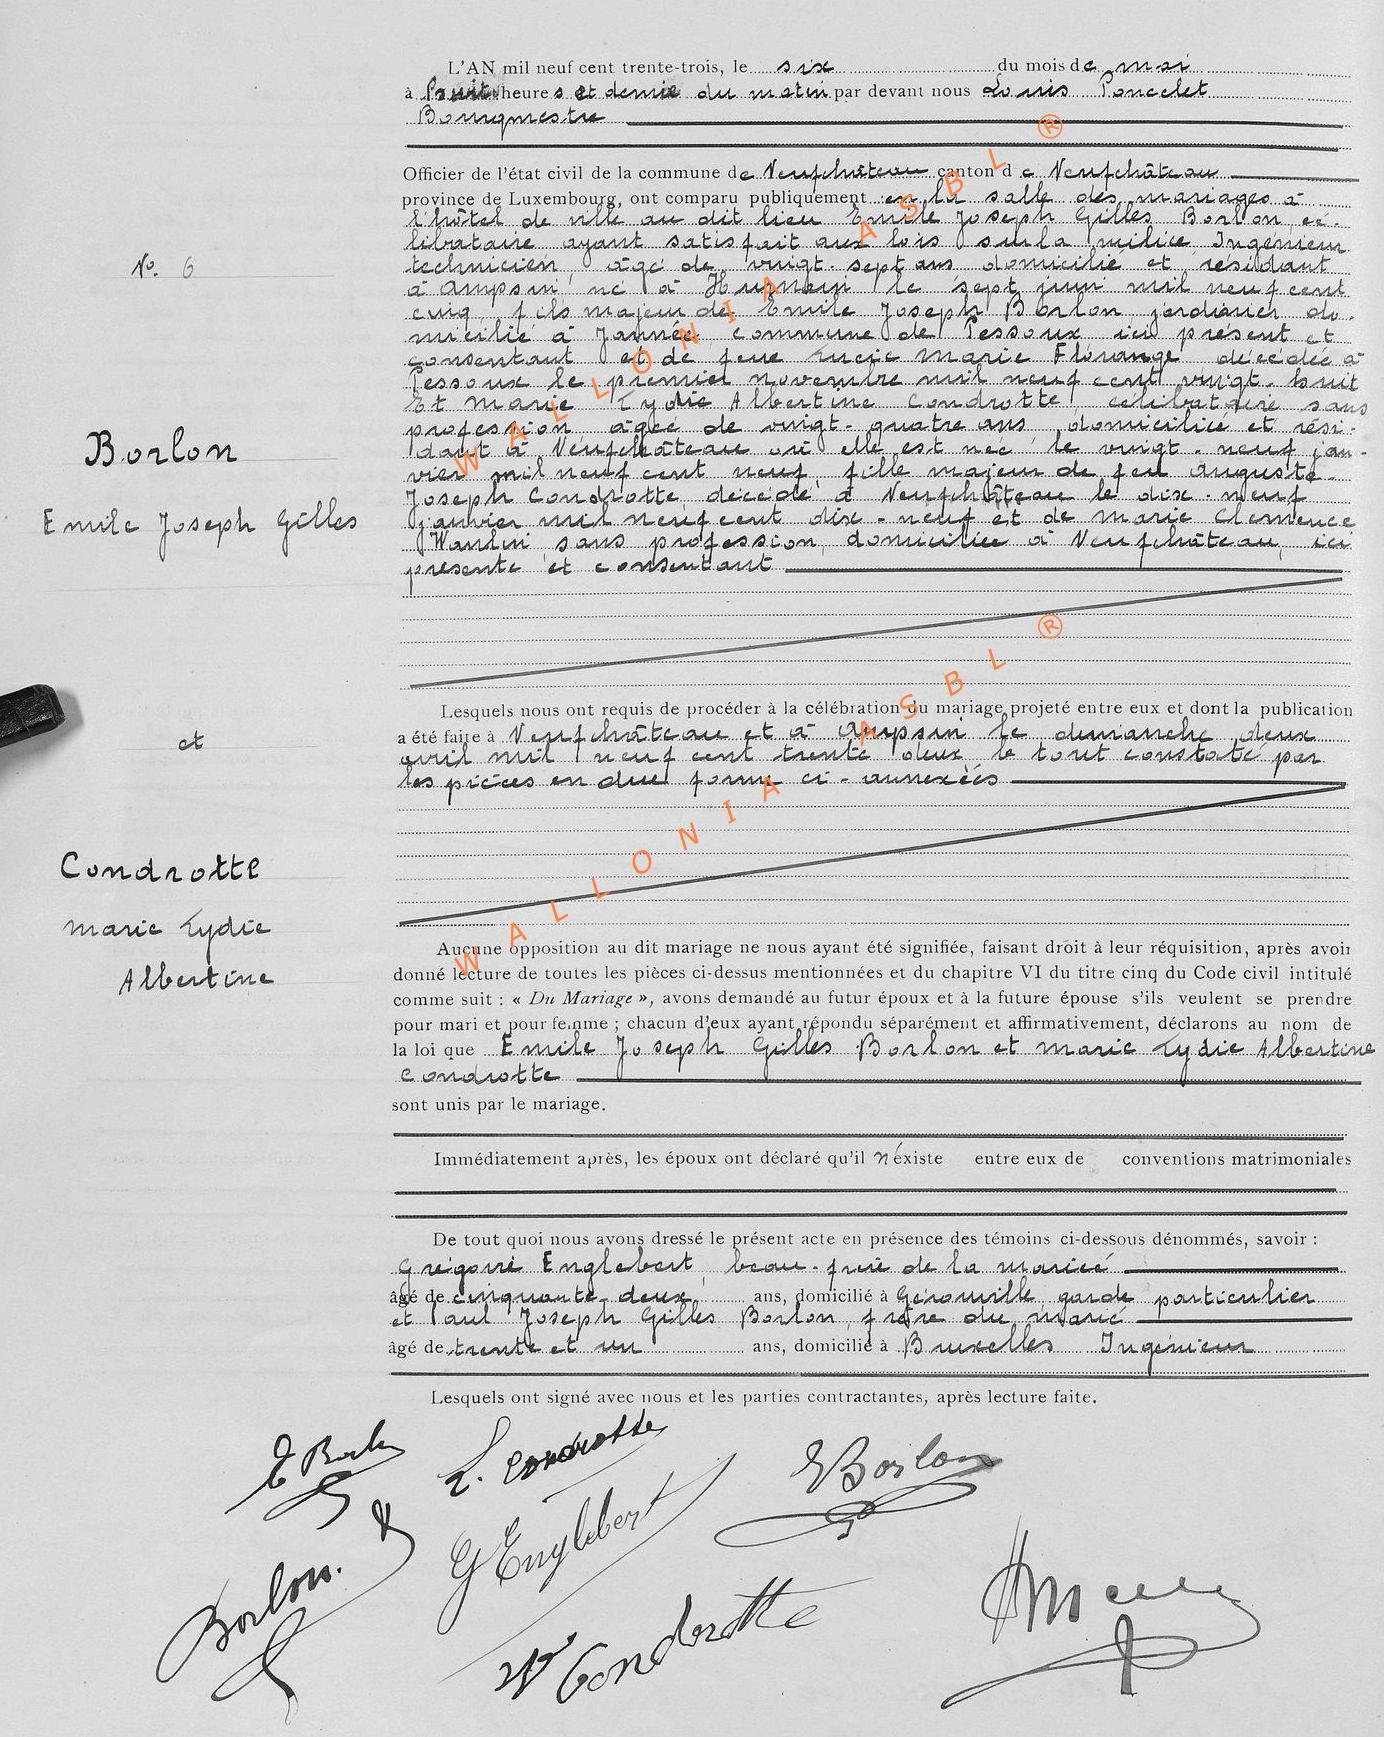 L'AN mil neuf cent trente-trois, le six du mois de mai
à huit heures et demie du matin par devant nous Louis Poncelet
Bourgmestre
Officier de l'état civil de la commune de Neufchâteau canton de Neufchâteau
province de Luxembourg, ont comparu publiquement en la salle des mariages à
l'hôtel de ville au dit lieu Emile Joseph Gilles Borlon, cé-
libataire ayant satisfait aux lois sur la milice Ingénieur
technicien, âgé de vingt-sept ans domicilié et résidant
à Ampsin, né à le sept juin mil neuf cent
cinq, fils majeur de Emile Joseph Borlon, jardinier do-
micilié à Jannée commune de Pessoux ici présent et
consentant et de feue Lucie Marie Florange décédée à
Pessoux le premier novembre mil neuf cent vingt-huit
Et Marie Lydie Albertine Condrotte, célibataire sans
profession, âgée de vingt-quatre ans, domiciliée et rési-
dant à Neufchâteau où elle est née le vingt-neuf jan-
vier mil neuf cent neuf, fille majeur de feu Auguste-
Joseph Condrotte décédé à Neufchâteau le dix-neuf
janvier mil neuf cent dix-neuf et de Marie Clémence
Waulin sans profession, domiciliée à Neufchâteau, ici
présente et consentant
N°. 6
Borlon
Emile Joseph Gilles
et
Condrotte
Marie Lydie
Albertine
Lesquels nous ont requis de procéder à la célébration du mariage projeté entre eux et dont la publication
a été faite à Neufchâteau et à Ampsin le dimanche deux
avril mil neuf cent trente deux le tout constaté par
les pièces en due forme ci-annexéés
Aucune opposition au dit mariage ne nous ayant été signifiée, faisant droit à leur réquisition, après avoir
donné lecture de toutes les pièces ci-dessus mentionnées et du chapitre VI du titre cinq du Code civil intitulé
comme suit : « Du Mariage », avons demandé au futur époux et à la future épouse s'ils veulent se prendre
pour mari et pour femme ; chacun d'eux ayant répondu séparément et affirmativement, déclarons au nom de
la loi que Emile Joseph Gilles Borlon et Marie Lydie Albertine
Condrotte
sont unis par le mariage.
Immédiatement après, les époux ont déclaré qu'il n'existe entre eux de conventions matrimoniales
De tout quoi nous avons dressé le présent acte en présence des témoins ci-dessous dénommés, savoir :
Grégoire Englebert, beau-frère de la mariée
âgé de cinquante deux ans, domicilié à Gérouville garde particulier
et Paul Joseph Gilles Borlon, frère du marié
âgé de trente et un ans, domicilié à Bruxelles Ingénieur
Lesquels ont signé avec nous et les parties contractantes, après lecture faite.
E Borlon
L. Condrotte
EBorlon
GEnglebert
Borlon.
Condrotte
WALLONIA ASBL ®
WALLONIA ASBL ®